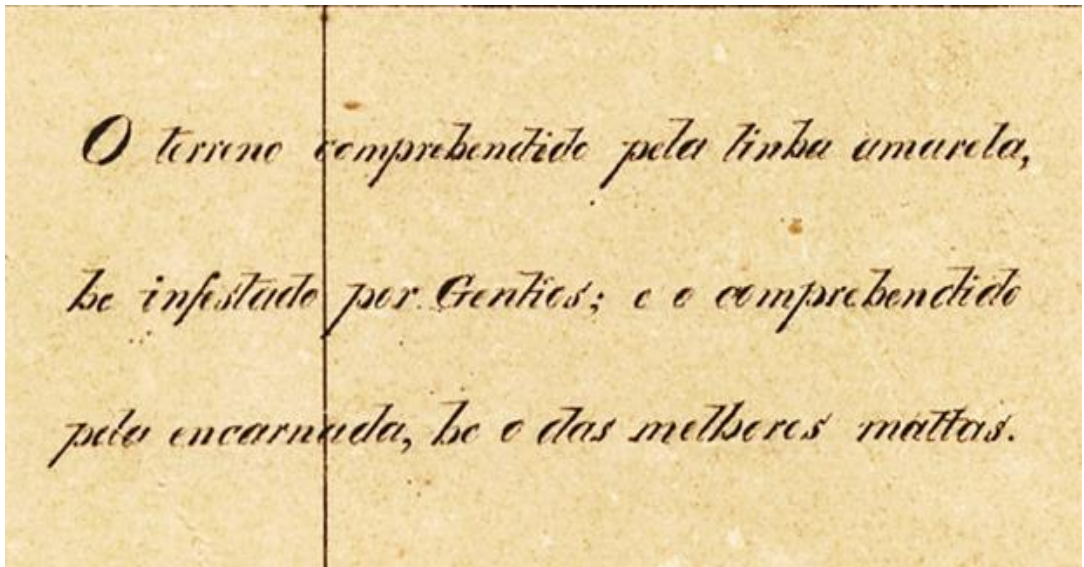 O terreno comprehendido pela linha amarela,
he infestado por Gentios; e o comprehendido
pela encarnada, he o das melhores mattas.